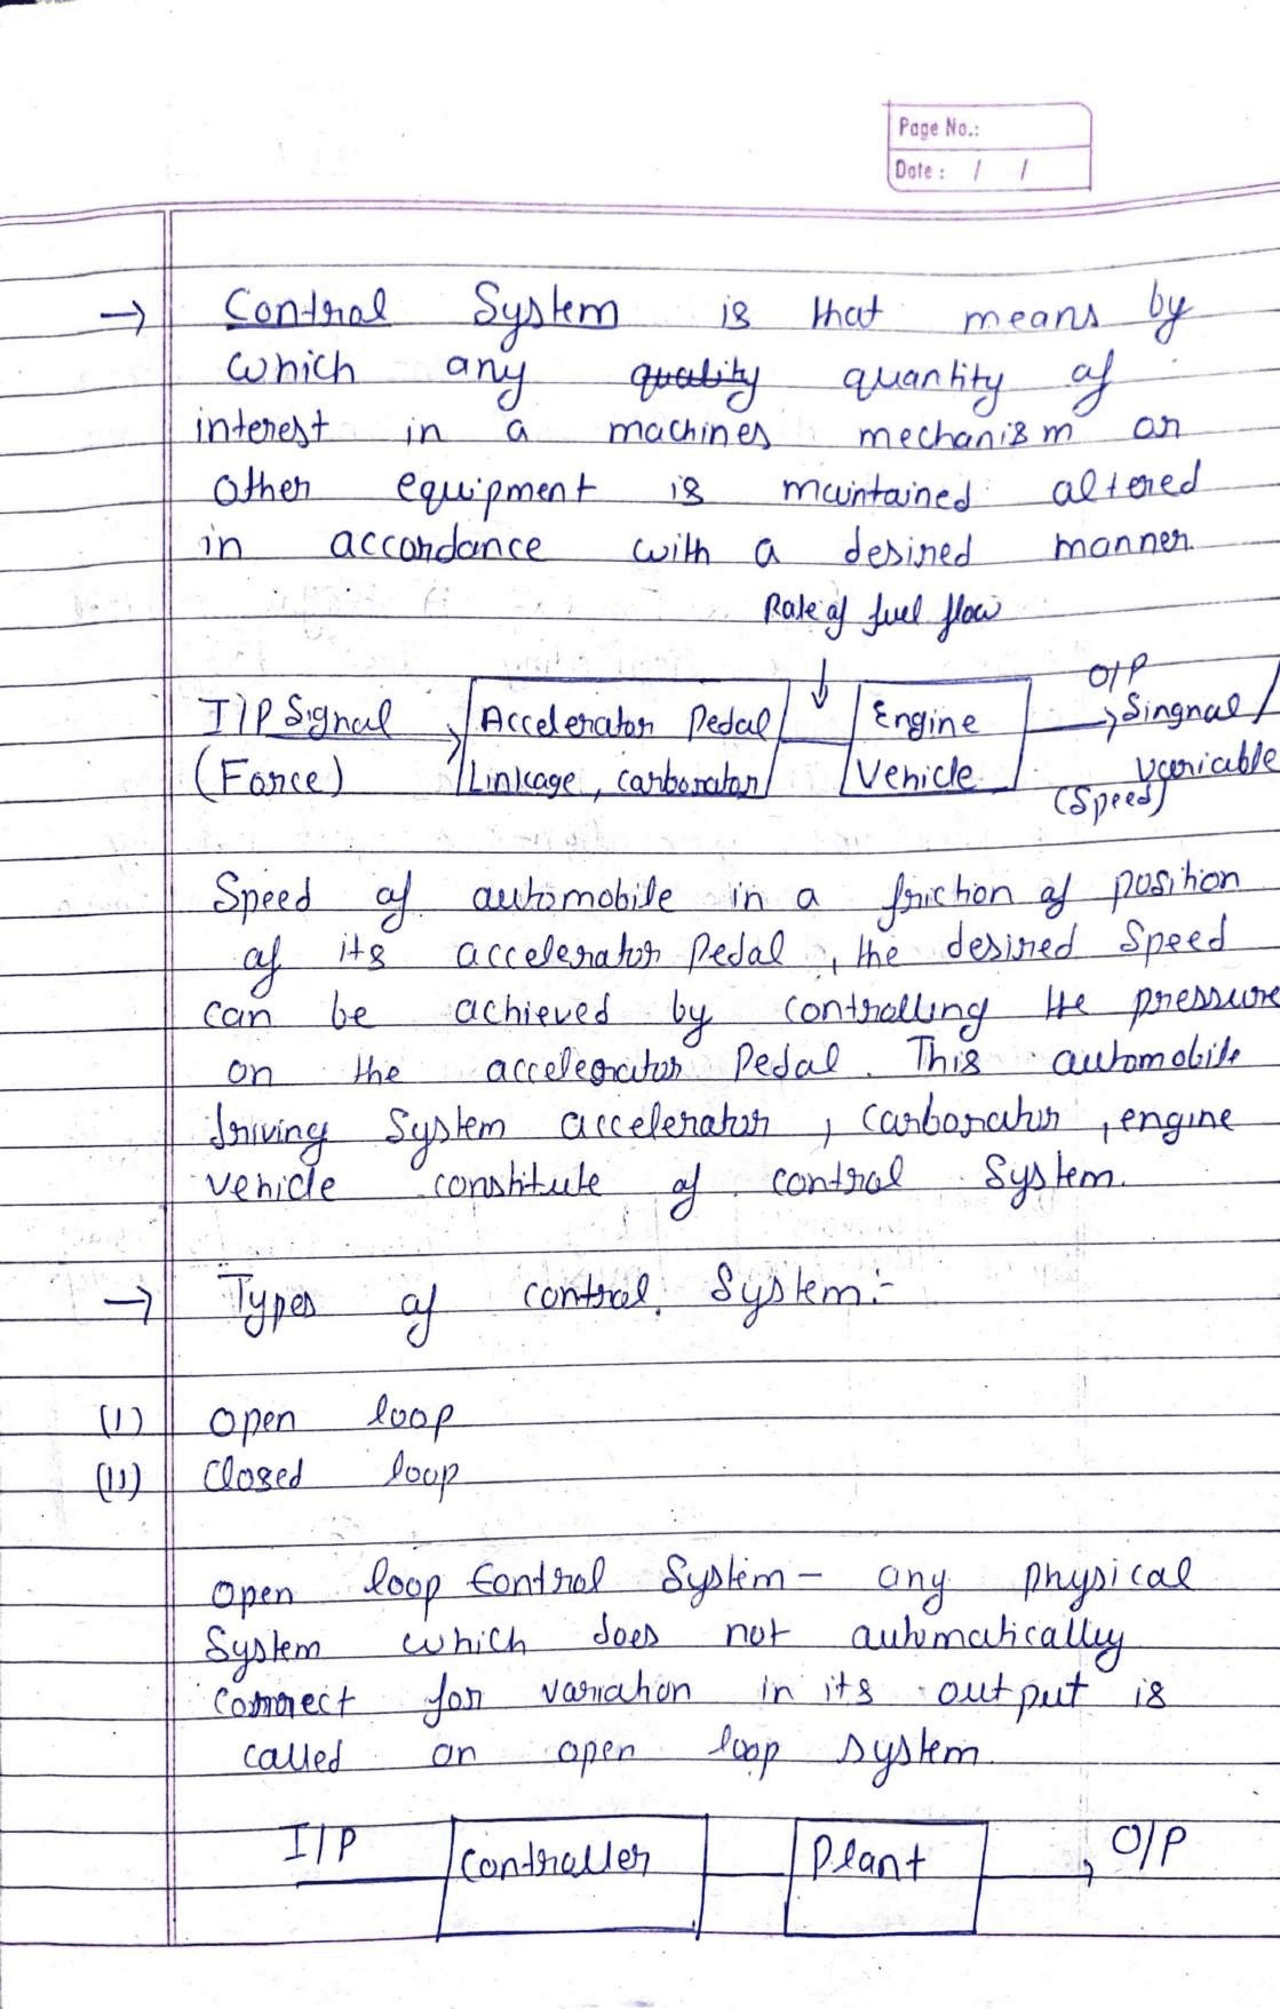 Page No.:
Date : / /
→ Control System is that means by
which any quality quantity of
interest in a machines mechanism or
other equipment is maintained altered
in accordance with a desired manner.
Rate of fuel flow
↓
I/P Signal
(Force)
Accelerator Pedal
Linkage, carborator
Engine
Vehicle
O/P
Singnal/
variable
(Speed)
Speed of automobile in a friction of position
of its accelerator Pedal, the desired Speed
can be achieved by controlling the pressure
on the accelerator Pedal. This automobile
driving System accelerator, carborator, engine
vehicle constitute of control System.
→ Types of control System:-
(I) Open loop
(II) Closed loop
Open loop Control System - any physical
System which does not automatically
correct for variation in its output is
called an open loop system.
I/P
Controller
Plant
O/P